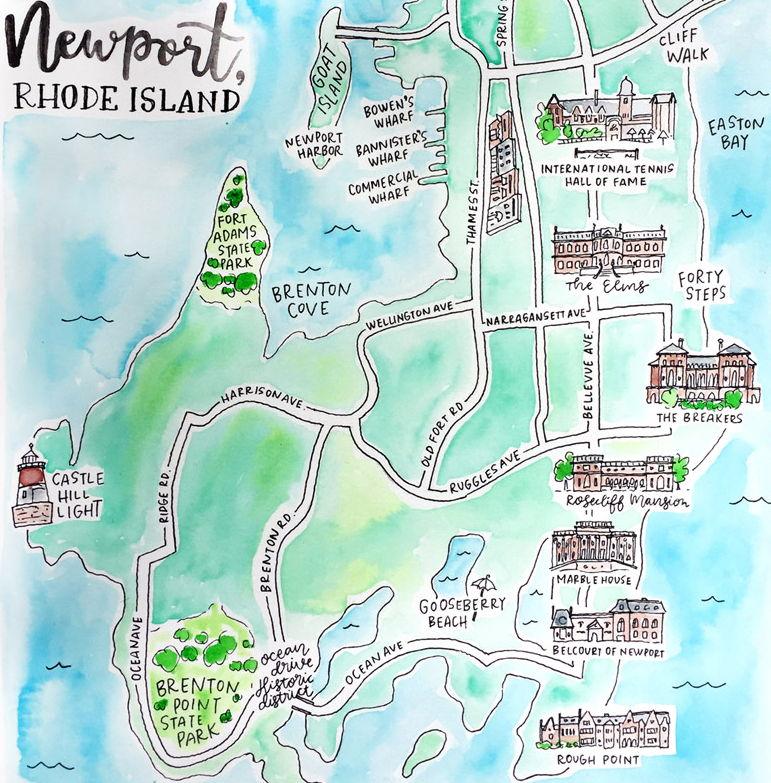 Newport,
RHODE ISLAND
GOAT
ISLAND
NEWPORT
HARBOR
BOWEN'S
WHARF
BANNISTER'S
WHARF
COMMERCIAL
WHARF
SPRING
CLIFF
WALK
EASTON
BAY
INTERNATIONAL TENNIS
HALL OF FAME
THAMES ST.
FORT
ADAMS
STATE
PARK
BRENTON
COVE
The Elms
FORTY
STEPS
WELLINGTON AVE
NARRAGANSETT AVE
BELLEVUE AVE.
THE BREAKERS
HARRISON AVE.
OLD FORT RD
RUGGLES AVE
CASTLE
HILL
LIGHT
RIDGE RD.
BRENTON RD.
Rosecliff Mansion
MARBLE HOUSE
GOOSEBERRY
BEACH
BELCOURT OF NEWPORT
OCEAN AVE
ocean
drive
Historic
district
OCEAN AVE
BRENTON
POINT
STATE
PARK
ROUGH POINT